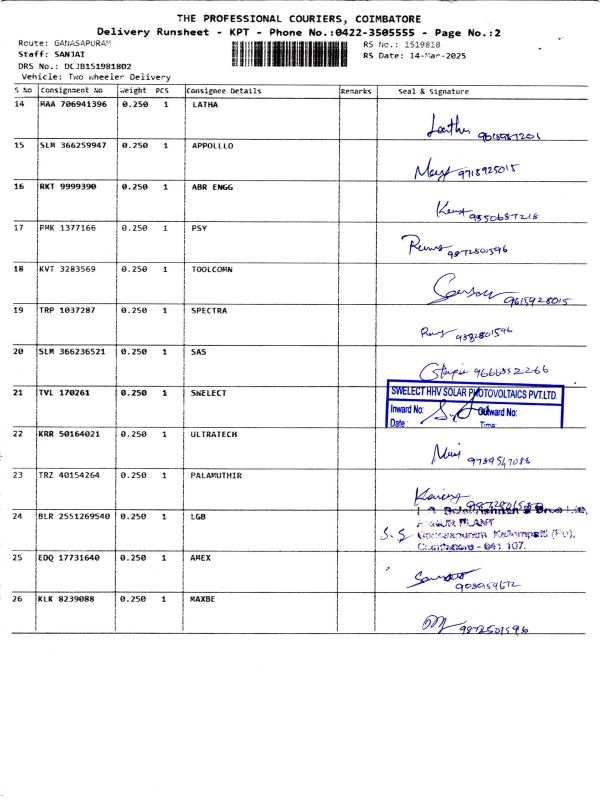 THE PROFESSIONAL COURIERS, COIMBATORE
Delivery Runsheet - KPT - Phone No.:0422-3505555 - Page No.:2
Route: GANASAPURAM
RS No.: 1519818
Staff: SANJAI
RS Date: 14-Mar-2025
DRS No.: DCJB151981802
Vehicle: Two Wheeler Delivery
S No Consignment No Weight PCS Consignee Details Remarks Seal & Signature
14 MAA 706941396 0.250 1 LATHA
Latha
15 SLM 366259947 0.250 1 APPOLLLO
9715925015
16 RKT 9999390 0.250 1 ABR ENGG
9350687218
17 PMK 1377166 0.250 1 PSY
9872501596
18 KVT 3283569 0.250 1 TOOLCOMN
9615928015
19 TRP 1037287 0.250 1 SPECTRA
20 SLM 366236521 0.250 1 SAS
21 TVL 170261 0.250 1 SWELECT
SWELECT HHV SOLAR PHOTOVOLTAICS PVT.LTD.
Inward No: Outward No:
Date : Time:
22 KRR 50164021 0.250 1 ULTRATECH
Mani
23 TRZ 40154264 0.250 1 PALAMUTHIR
24 BLR 2551269540 1 0.250 LGB
PLANT
S. S
Coimbatore - 641 107.
25 EDQ 17731640 0.250 1 AMEX
26 KLK 8239088 0.250 1 MAXBE
9872501596